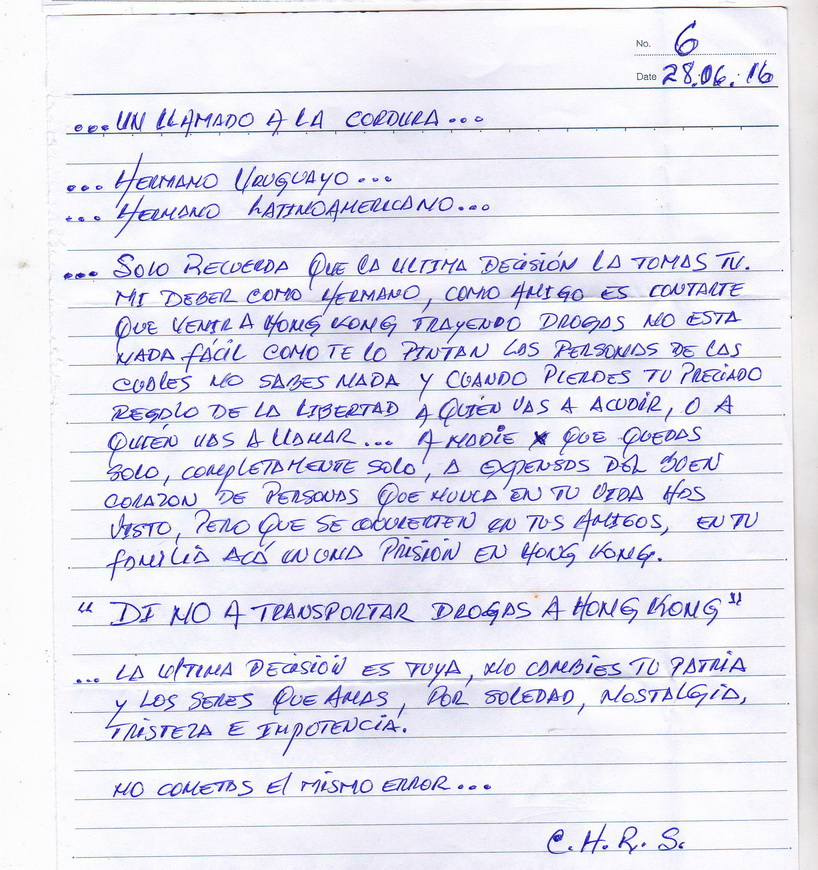 No. 6
Date 28.06.16
... UN LLAMADO A LA CORDURA ...
... HERMANO URUGUAYO ...
... HERMANO LATINOAMERICANO ...
... SOLO RECUERDA QUE LA ULTIMA DECISIÓN LA TOMAS TU.
MI DEBER COMO HERMANO, COMO AMIGO ES CONTARTE
QUE VENIR A HONG KONG TRAYENDO DROGAS NO ESTA
NADA FÁCIL COMO TE LO PINTAN LAS PERSONAS DE LAS
CUALES NO SABES NADA Y CUANDO PIERDES TU PRECIADO
REGALO DE LA LIBERTAD A QUIÉN VAS A ACUDIR, O A
QUIÉN VAS A LLAMAR... A NADIE X QUE QUEDAS
SOLO, COMPLETAMENTE SOLO, A EXPENSAS DEL BUEN
CORAZON DE PERSONAS QUE NUNCA EN TU VIDA HAS
VISTO, PERO QUE SE CONVIERTEN EN TUS AMIGOS, EN TU
FAMILIA ACÁ EN UNA PRISIÓN EN HONG KONG.
" DI NO A TRANSPORTAR DROGAS A HONG KONG "
... LA ULTIMA DECISIÓN ES TUYA, NO CAMBIES TU PATRIA
Y LOS SERES QUE AMAS, POR SOLEDAD, NOSTALGIA,
TRISTEZA E IMPOTENCIA.
NO COMETAS El MISMO ERROR ...
C.H.R.S.